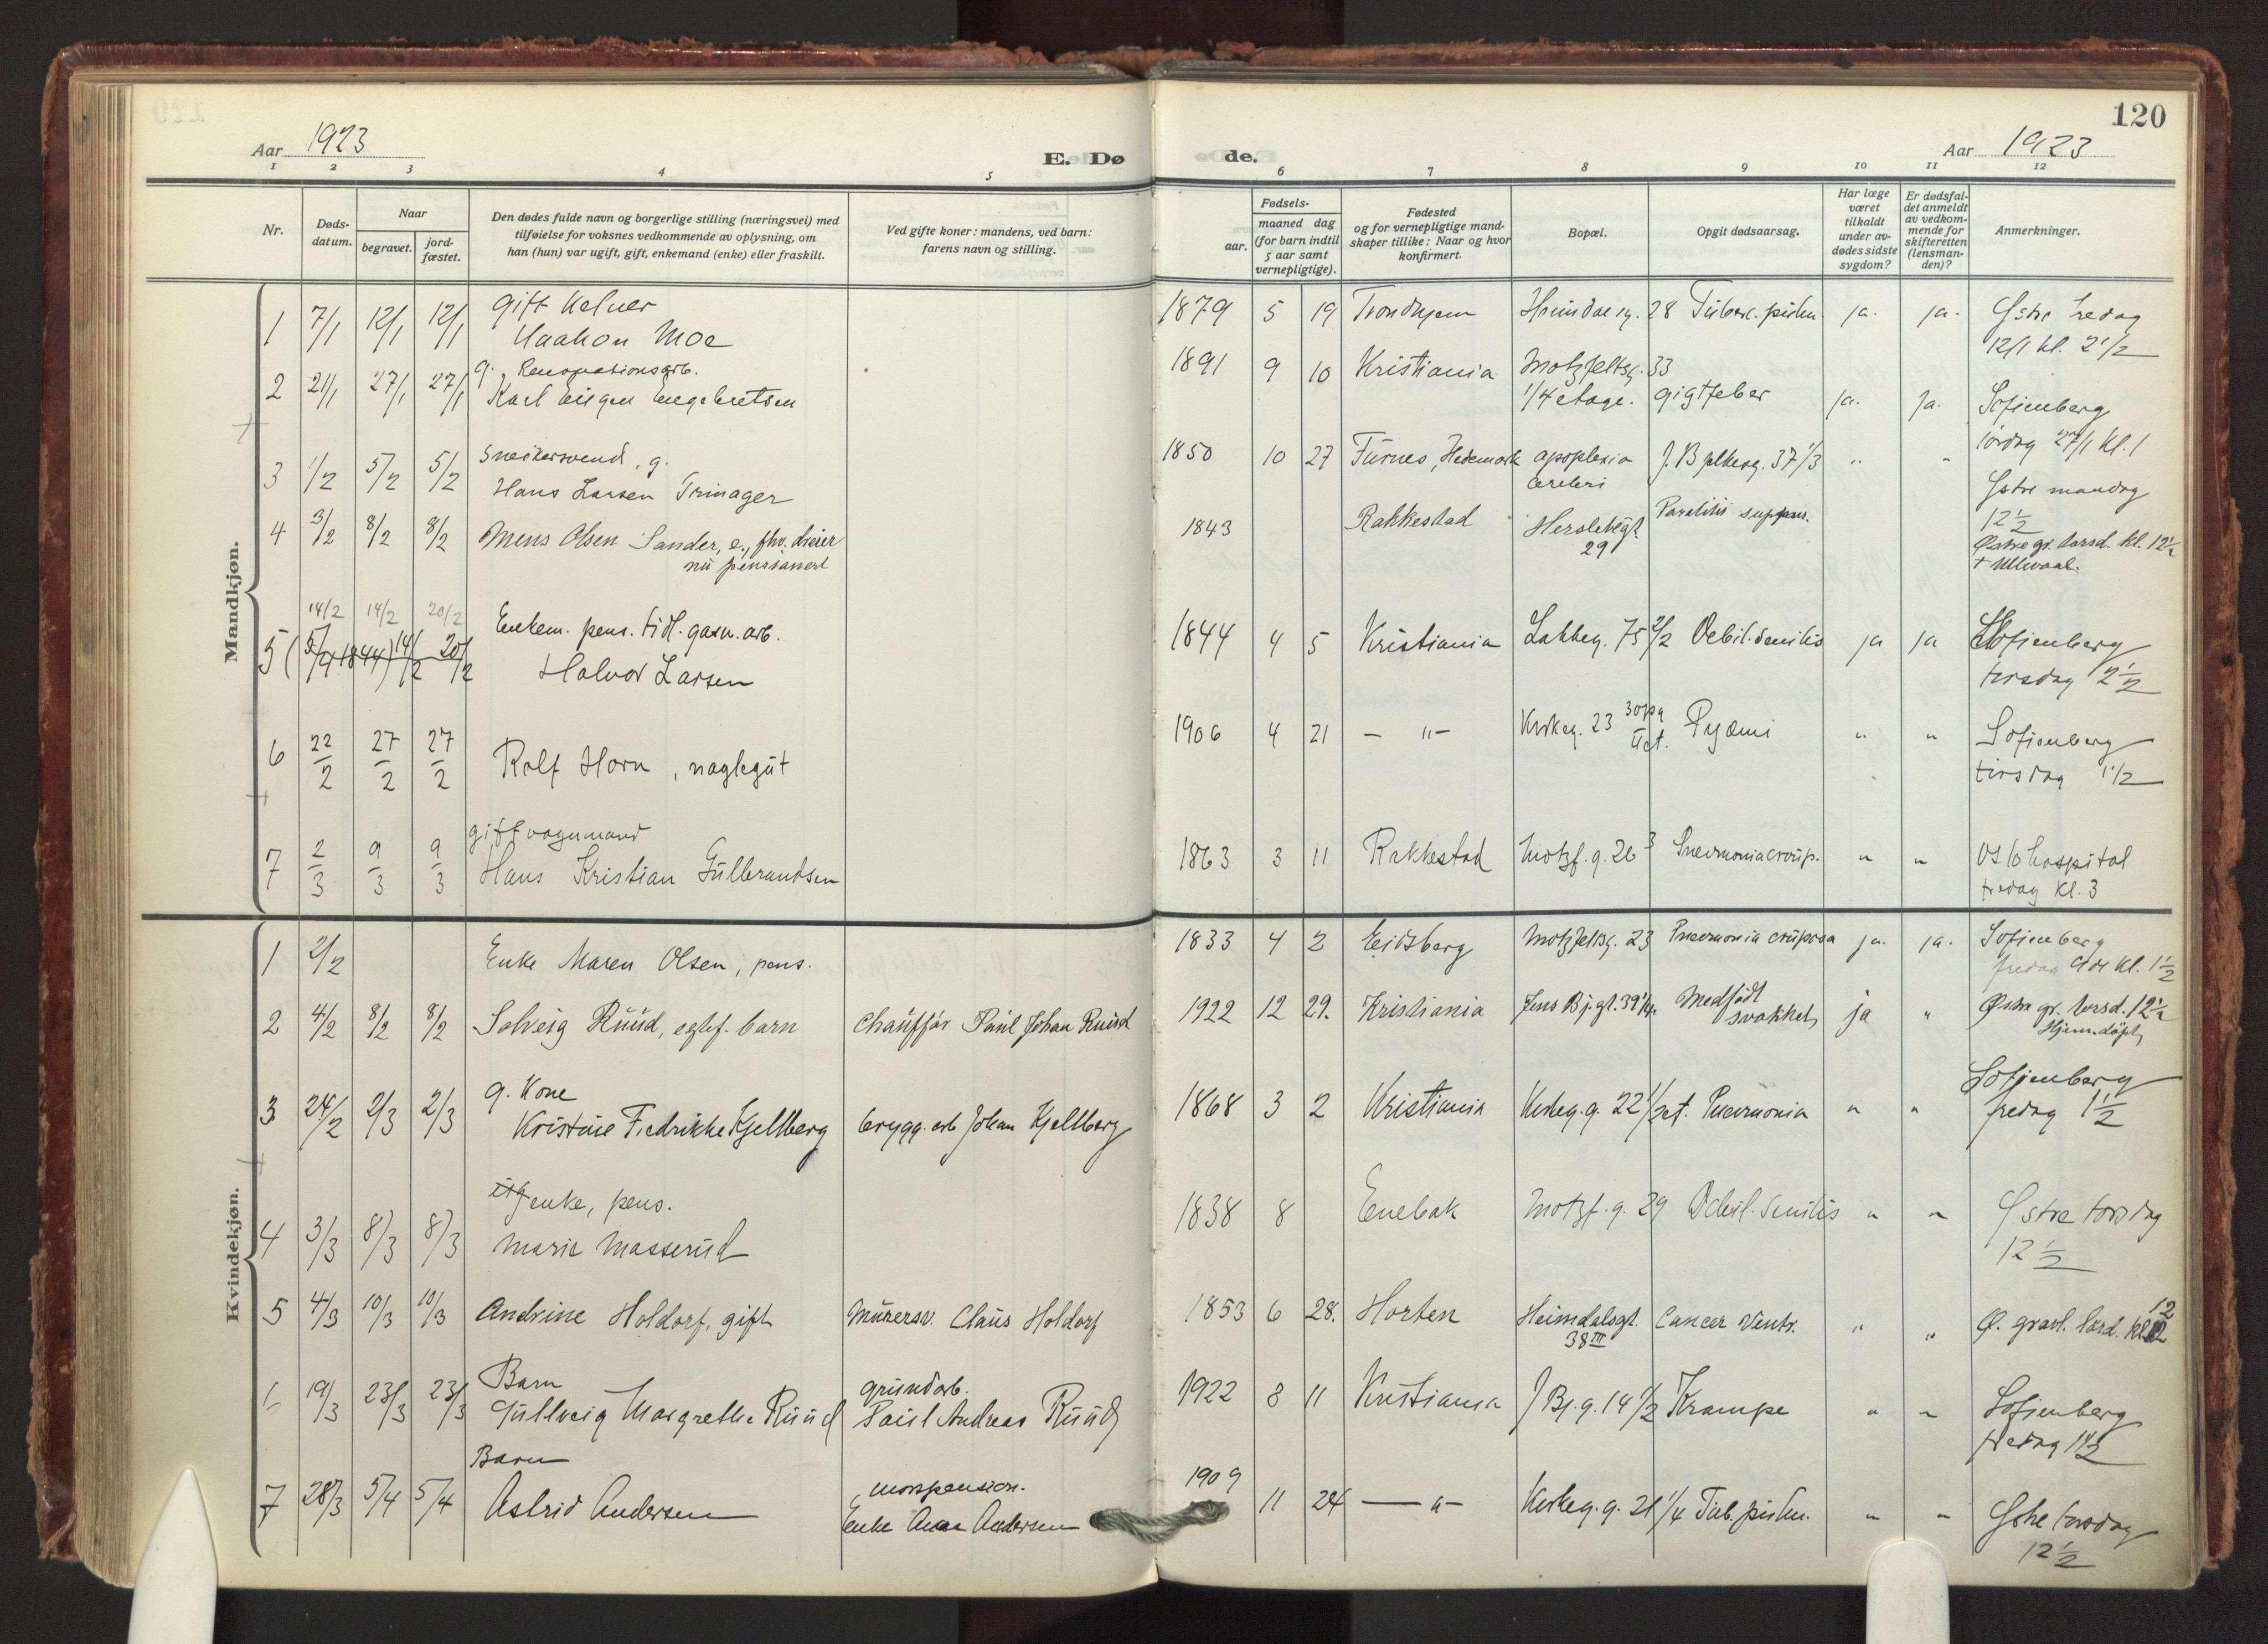 120
Aar 1923
E. Dø
de.
Aar 1923
1 2 3 4 5 6 7 8 9 10 11 12
Nr.
Døds-
datum.
Naar
begravet.
jord-
fæstet.
Den dødes fulde navn og borgerlige stilling (næringsvei) med
tilføielse for voksnes vedkommende av oplysning, om
han (hun) var ugift, gift, enkemand (enke) eller fraskilt.
Ved gifte koner: mandens, ved barn:
farens navn og stilling.
Fødsels-
aar.
maaned dag
(for barn indtil
5 aar samt
vernepligtige).
Fødested
og for vernepligtige mand-
skaper tillike: Naar og hvor
konfirmert.
Bopæl.
Opgit dødsaarsag.
Har læge
været
tilkaldt
under av-
dødes sidste
sygdom?
Er dødsfal-
det anmeldt
av vedkom-
mende for
skifteretten
(lensman-
den)?
Anmerkninger.
Mandkjøn.
gift Kelner
1 7/1 12/1 12/1 Haakon Moe 1879 5 19 Trondhjem 28 ja. ja.
12/1 kl. 2 1/2
g. Renovationsarb.
2 21/1 27/1 27/1 Karl Engebretsen 1891 9 10 Kristiania Motzfeltsg. 33
1/4 etage. gigtfeber ja. ja. Sofienberg
lørdag 27/1 kl. 1
Snekersvend, g.
3 1/2 5/2 5/2 Hans Larsen 1850 10 27 Furnes, Hedemark apoplexia
cerebri 37 1/3 " "
Østre mandag
12 1/2
4 3/2 8/2 8/2 Mens Olsen Sander, e., fhv. dreier
nu pensionert 1843 Rakkestad Herslebsgt.
29
Østre gr. torsd. kl. 12 1/2
+ Ullevaal.
14/2 14/2 20/2
Enkem. pens. tidl. gasv. arb.
5 (5/4 1844) 14/2 20/2 Halvor Larsen 1844 4 5 Kristiania Lakkeg. 75 2/2 Debil. senilis ja ja Sofienberg
tirsdag 2 1/2
6 22/2 27/2 27/2 Rolf Horn, naglegut 1906 4 21 — " — Kirkeg. 23 Pyæmi " " Sofienberg
tirsdag 1 1/2
gift vognmand
7 2/3 9/3 9/3 Hans Kristian Gulbrandsen 1863 3 11 Rakkestad Motzf. g. 26 3 Pneumonia croup. " " Oslo hospital
fredag kl. 3
Kvindekjøn.
1 2/2 Enke Maren Olsen, pens. 1833 4 2 Eidsberg Motzfeltsg. 23 Pneumonia cruposa ja. ja. Sofienberg
fredag 9de kl. 1 1/2
2 4/2 8/2 8/2 Solveig Ruud, egtef. barn Chauffør Paul Johan Ruud 1922 12 29. Kristiania Jens Bj. gt. 39 Medfødt
svakhet ja " Østre gr. torsd. 12 1/2
Hjemmedøpt
g. Kone
3 24/2 2/3 2/3 Kristine Fredrikke Kjellberg brygg. arb Johan Kjellberg 1868 3 2 Kristiania Kirkeg. g. 22 Pneumonia " " Sofienberg
fredag 1 1/2
enke, pens.
4 3/3 8/3 8/3 Marie Masserud 1838 8 Enebak Motzf. g. 29 Debil. Senilis " " Østre torsdag
12 1/2
5 4/3 10/3 10/3 Andrine Holdorf, gift Murersv. Claus Holdorf 1853 6 28. Horten Heimdalsgt.
38 III Cancer Ventr. " " Ø. gravl. lørd. kl. 12
Barn
6 19/3 23/3 23/3 Gullveig Margrethe Ruud grundarb.
Paul Andreas Ruud 1922 8 11 Kristiania J Bj. g. 14 1/2 Krampe " " Sofienberg
fredag 1 1/2
Barn
7 28/3 5/4 5/4 Astrid Andersen morspension.
Enke Anna Andersen 1909 11 24 — " — Kirkeg. g. 21 1/4 " " Østre torsdag
12 1/2